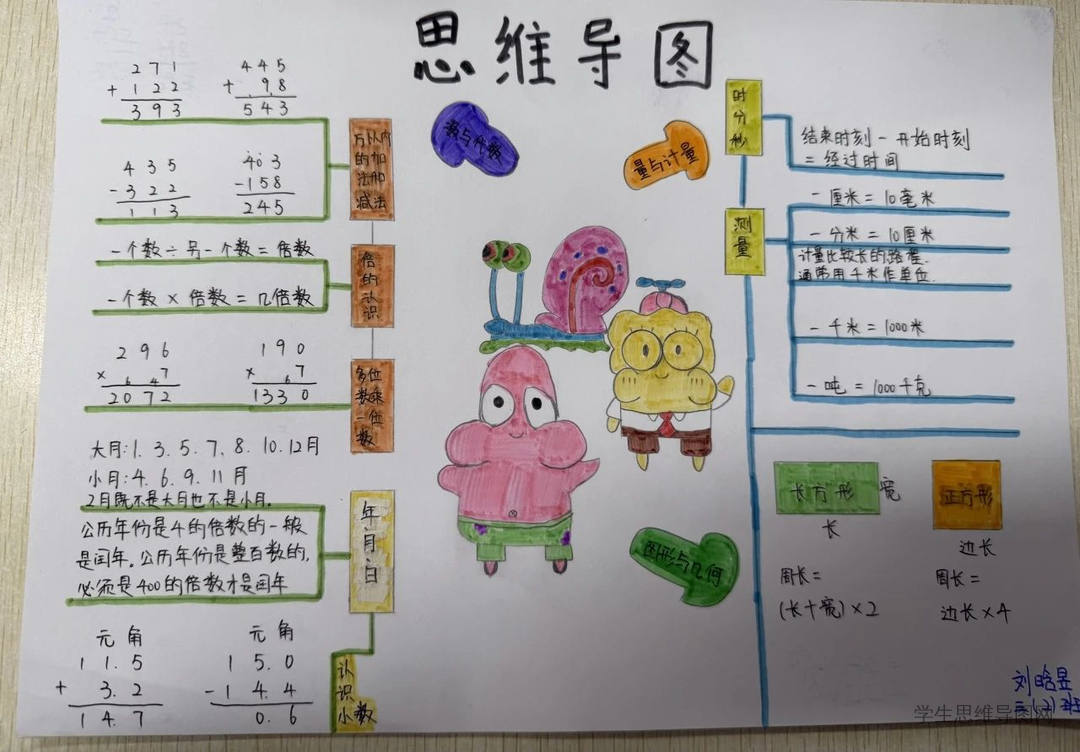 思维导图
数与代数
量与计量
图形与几何
271
+122
393
445
+98
543
435
-322
113
403
-158
245
万以内
的加
法加
减法
一个数÷另一个数=倍数
一个数×倍数=几倍数
倍的认识
296
×7
64
2072
190
×7
6
1330
多位
数乘
一位
数
大月:1.3.5.7.8.10.12月
小月:4.6.9.11月
2月既不是大月也不是小月.
公历年份是4的倍数的一般
是闰年.公历年份是整百数的,
必须是400的倍数才是闰年
年·月·日
元角
11.5
+3.2
14.7
元角
15.0
-14.4
0.6
认识
小数
时分秒
结束时刻-开始时刻
=经过时间
测量
一厘米=10毫米
一分米=10厘米
计量比较长的路程.
通常用千米作单位.
一千米=1000米
一吨=1000千克
长方形
宽
长
周长=
(长+宽)×2
正方形
边长
周长=
边长×4
刘晗昱
三(2)班
学生思维导图网